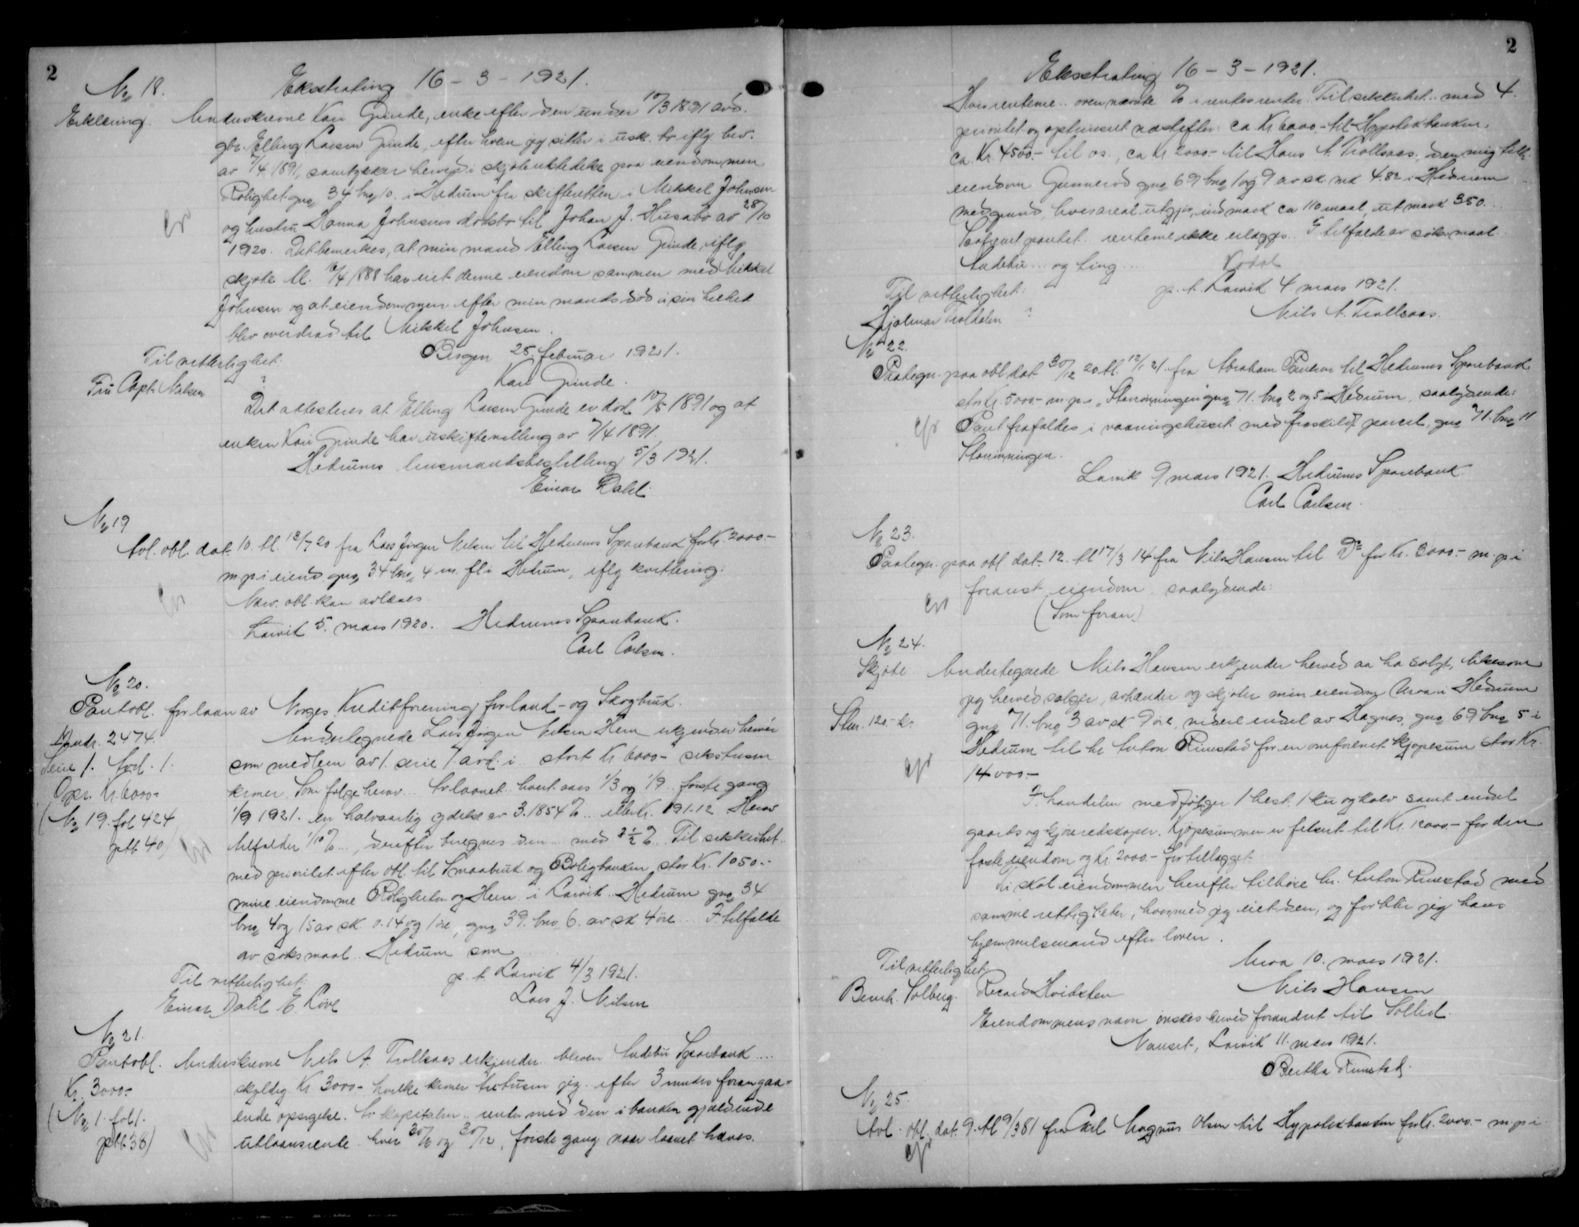 2
No 18. Ekstrating 16-3-1921.
Erklæring. Underskrevne Kari Grinde, enke efter den under 10/3 1891 avd.
gbr. Elling Larsen Grinde, efter hvem jeg sitter i usk. bo iflg bev.
av 7/4 1891, samtykker herved i skjøteutstedelse paa eiendommen
Rolighet gno 34 bno 10. i Hedrum fra skifteretten i Mikkel Johnsen
og hustru Hanna Johnsens dødsbo til Johan J. Husabø av 28/10
1920. Det bemerkes, at min mand Elling Larsen Grinde, iflg
skjøte tl. 1888 har eiet denne eiendom sammen med Mikkel
Johnsen og at eiendommen efter min mands død i sin helhet
blev overdrad til Mikkel Johnsen.
Til vitterlighet: Bergen 25 februar 1921.
Fru Capt. Nielsen ? Kari Grinde.
Det attesteres at Elling Larsen Grinde er død 1891 og at
enken Kari Grinde har uskiftebevilling av 7/4 1891.
Hedrums lensmandsbestilling 5/3 1921.
Einar Dahl.
No 19
Avl. obl. dat. 10. tl. 12/7 20 fra Lars Jørgen Nilsen til Hedrums Sparebank for Kr. 2000-
m.p.i eiend. gno 34 bno 4 m. fl. i Hedrum, iflg kvittering.
Nærv. obl. kan avlæses.
Larvik 5. mars 1920. Hedrums Sparebank.
Carl Carlsen.
No 20.
Pantobl. for laan av Norges Kreditforening for land- og Skogbruk.
Laanr. 2474. Undertegnede Lars Jørgen Nilsen Hem erkjender herved
Serie 1. fol. 1. som medlem av 1. serie 1 avd. i stort Kr 6000- sekstusen
Opr. Kr 6000- kroner. Som følge herav
(No 19. fol 424 1/9 1921. en halvaarlig ydelse av 3.1854 % eller Kr. 191.12 Herav
ptb. 40) tilfalder 1/10 % derefter beregnes den med 2 1/2 %. Til sikkerhet
med prioritet efter obl. til Smaabruk og Boligbanken stor Kr. 1050.-
mine eiendomme Rolighet og Hem i Larvik Hedrum gno 34
bno 4 og 15 av sk 0.14 og 1 øre, gno 39. bno 6. av sk 4 øre. I tilfælde
av søksmaal Hedrum som
Til vitterlighet: p. t. Larvik 4/3 1921.
Einar Dahl E. Love Lars J. Nilsen
No 21.
Pantobl. Underskrevne Nils A. Trollsaas erkjender herved Andebu Sparebank ...
Kr. 3000- skyldig Kr 3000- hvilke kroner tretusen jeg efter 3 mndrs foregaa-
(No 1. fol 1. ende opsigelse. Av kapitalen renter med den i banken gjældende
ptb. 38) utlaansrente hver og 30/12, første gang naar laanet hæves.
2
Ekstrating 16-3-1921.
Høies renterne ovennævnte % i rentesrenter. Til sikkerhet med 4.
prioritet og optrinsret næstefter ca Kr 6000.- til Hypotekbanken,
ca Kr. 4500.- til os, ca Kr 2000- til Hans A. Trollsaas, den mig tilh.
eiendom Gunnerød gno 69 bno 1 og 9 av sk mk 4.82 i Hedrum
med grund, hvis areal utgjør, indmark ca 110 maal, utmark 350.
Saafremt pantet renterne ikke erlægges. I tilfælde av søksmaal
Andebu ... og ting
Til vitterlighet: p. t. Larvik 4. mars 1921.
Hjalmar Trolldalen ? Nils A. Trollsaas.
No 22.
Paategn. paa obl. dat. 30/12 20 tl. 12/1 21 fra Abraham Paulsen til Hedrums Sparebank
stor Kr. 5000- m.p.i „Skoremyringen gno 71. bno 2 og 5 Hedrum, saalydende:
Pant frafaldes i vaaningshuset med fraskilt parcel, gno 71. bno 11
Larvik 9 mars 1921. Hedrums Sparebank
Carl Carlsen.
No 23.
Paategn. paa obl. dat. 12. tl 17/3 14 fra Nils Hansen til Do for Kr. 3000.- m.p.i
foranst. eiendom saalydende:
(Som foran)
No 24.
Skjøte Undertegnede Nils Hansen erkjender herved aa ha solgt, likesom
jeg herved sælger, avhænder og skjøter min eiendom Moen i Hedrum
Stm. 120- kr. gno 71. bno 3 av sk 9 øre, videre endel av Hagnes, gno 69 bno 5 i
Hedrum til hr. Anton Rimstad for en omforenet kjøpesum stor Kr.
14000-
I handelen medfølger 1 hest 1 ku og kalv samt endel
gaards og kjøreredskaper. Kjøpesummen er fastsat til Kr. 12000- for den
faste eiendom og Kr. 2000.- for tillægget.
Ti skal eiendommen herefter tilhøre hr. Anton Rimstad med
samme rettigheter, hvormed jeg eiet den, og forblir jeg hans
hjemmelsmand efter loven.
Til vitterlighet: Moen 10. mars 1921.
Bernh. Solberg. Rikard Hvidsten Nils Hansen
Eiendommens navn ønskes herved forandret til Sollid.
Nanset, Larvik 11. mars 1921.
Bertha Rimstad.
No 25.
Avl. obl. dat. 9. tl. 9/3 81 fra Carl Magnus Olsen til Hypotekbanken for Kr. 2000.- m.p.i